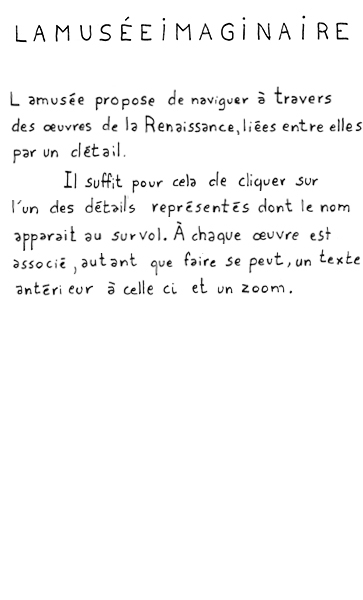 LAMUSÉEIMAGINAIRE
L amusée propose de naviguer à travers
des œuvres de la Renaissance, liées entre elles
par un détail.
Il suffit pour cela de cliquer sur
l'un des détails représentés dont le nom
apparait au survol. À chaque œuvre est
associé, autant que faire se peut, un texte
antérieur à celle ci et un zoom.